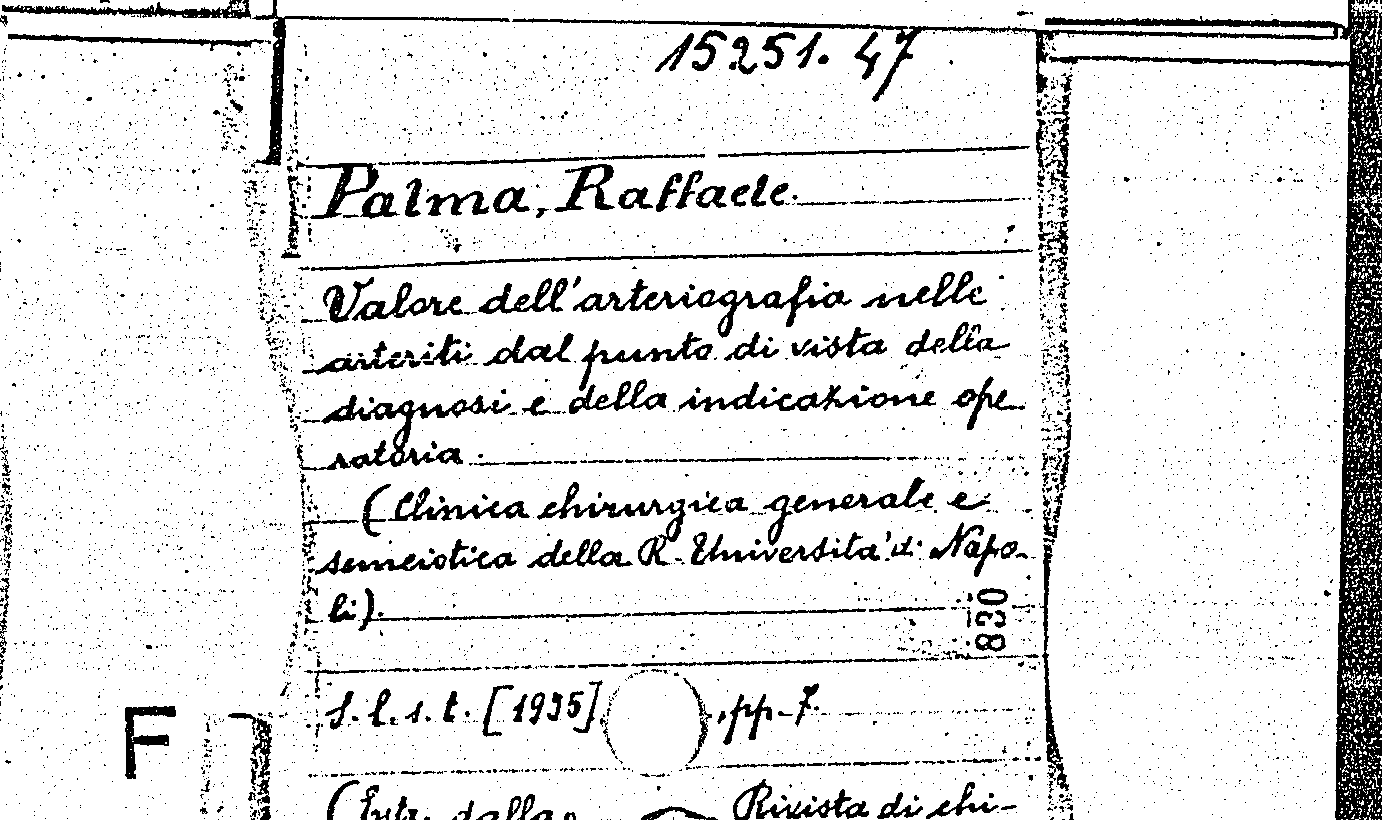 15251. 47
Palma, Raffaele.
Valore dell'arteriografia nelle
arteriti dal punto di vista della
diagnosi e della indicazione ope
ratoria.
(Clinica chirurgica generale e
semeiotica della R. Università di Napo-
li).
830
S. l. s. t. [1935], pp. 7.
F
(Estr. dalla Rivista di chi-